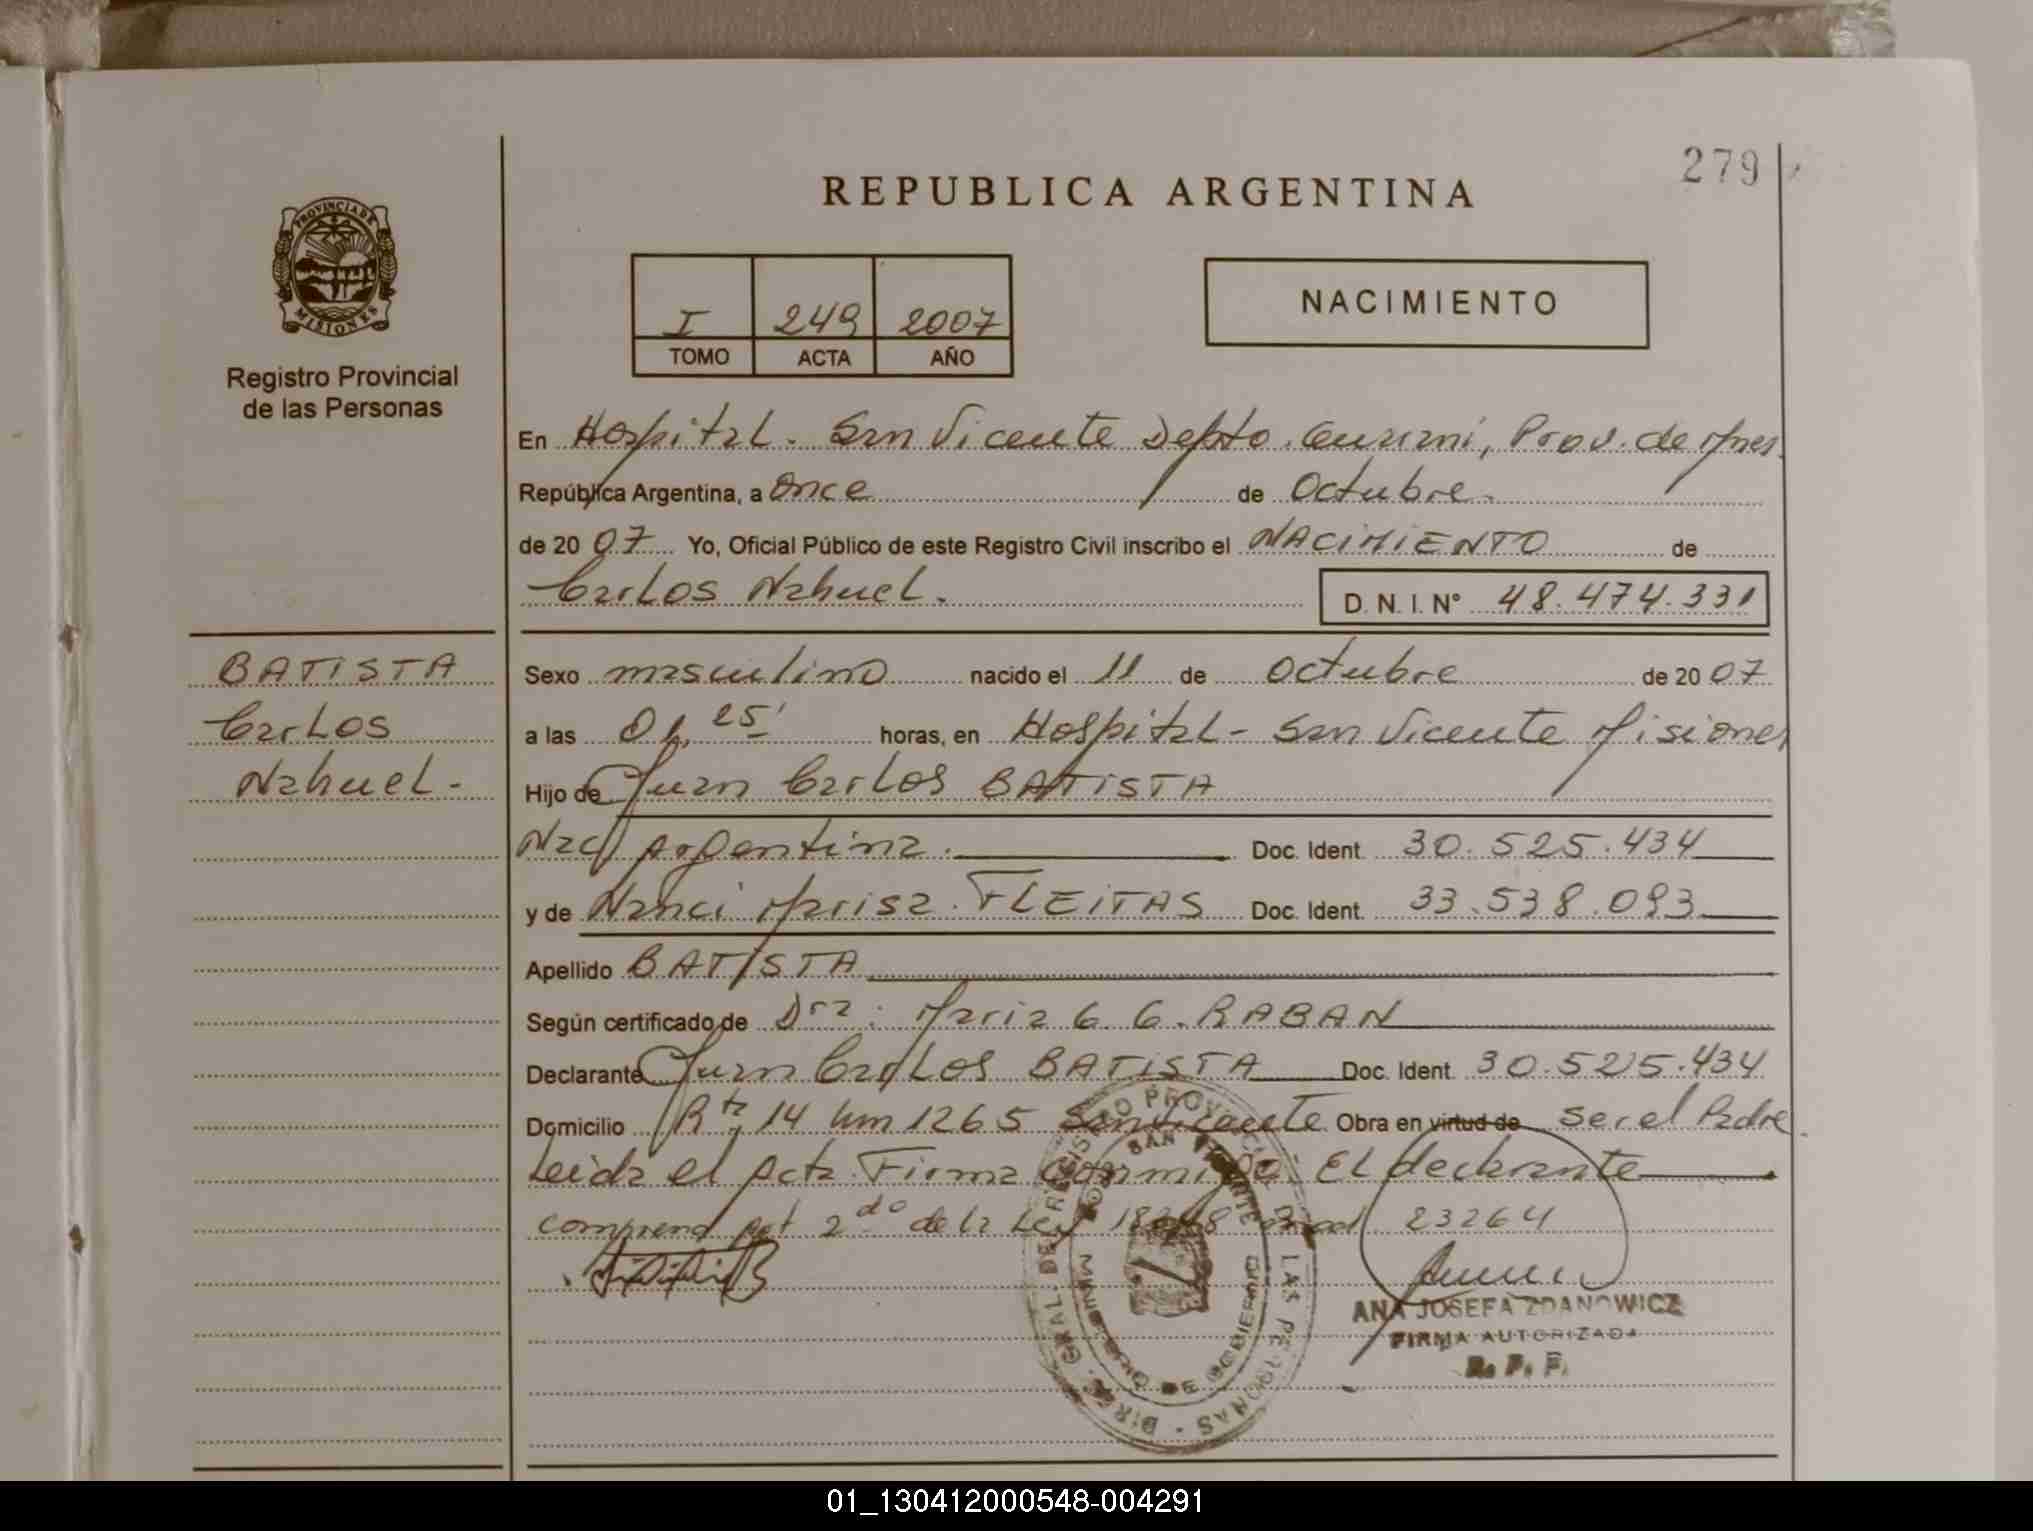 279
REPUBLICA ARGENTINA
PROVINCIA DE
MISIONES
Registro Provincial
de las Personas
I 249 2007
TOMO ACTA AÑO
NACIMIENTO
En Hospital. San Vicente Depto. Guarani, Prov. de Mnes.
República Argentina, a Once de Octubre.
de 20 07 Yo, Oficial Público de este Registro Civil inscribo el NACIMIENTO de
Carlos Nahuel.
D. N. I. N° 48.474.331
BATISTA
Carlos
Nahuel.-
Sexo masculino nacido el 11 de Octubre de 20 07
a las 01,25' horas, en Hospital - San Vicente Misiones
Hijo de Juan Carlos BATISTA
Nac Argentina. Doc. Ident. 30.525.434
y de Nanci Marisa FLEITAS Doc. Ident. 33.538.093
Apellido BATISTA
Según certificado de Dra: Maria G G. RABAN
Declarante Juan Carlos BATISTA Doc. Ident. 30.525.434
Domicilio Rta 14 km 1265 San Vicente Obra en virtud de ser el Padre
Leida el Acta Firma conmigo: El declarante
2do de la Ley 23264
DIREC. GRAL. DEL REGISTRO PROVINCIAL DE LAS PERSONAS
SAN VICENTE
MINISTERIO DE GOBIERNO
ANA JOSEFA ZDANOWICZ
FIRMA AUTORIZADA
R. P. P.
01_130412000548-004291